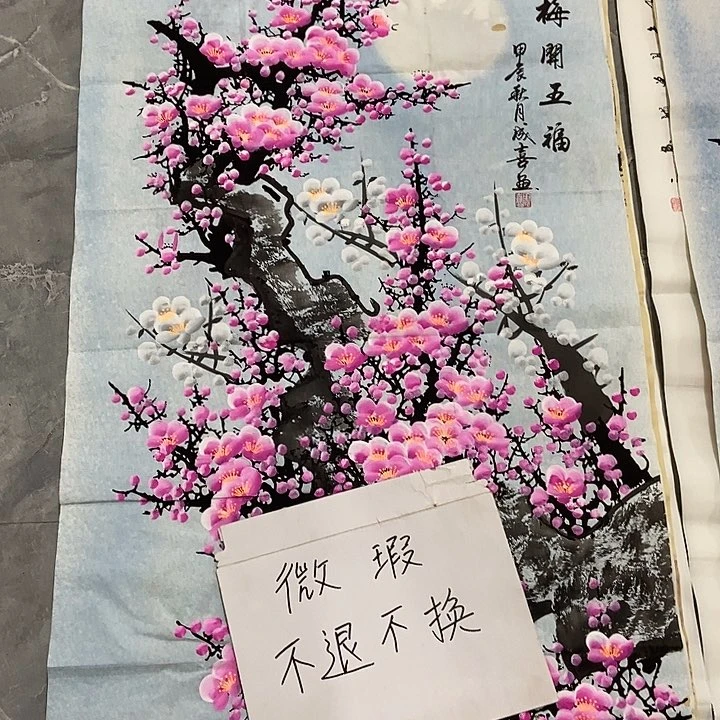 梅開五福
甲辰秋月成喜畫
微瑕
不退不換